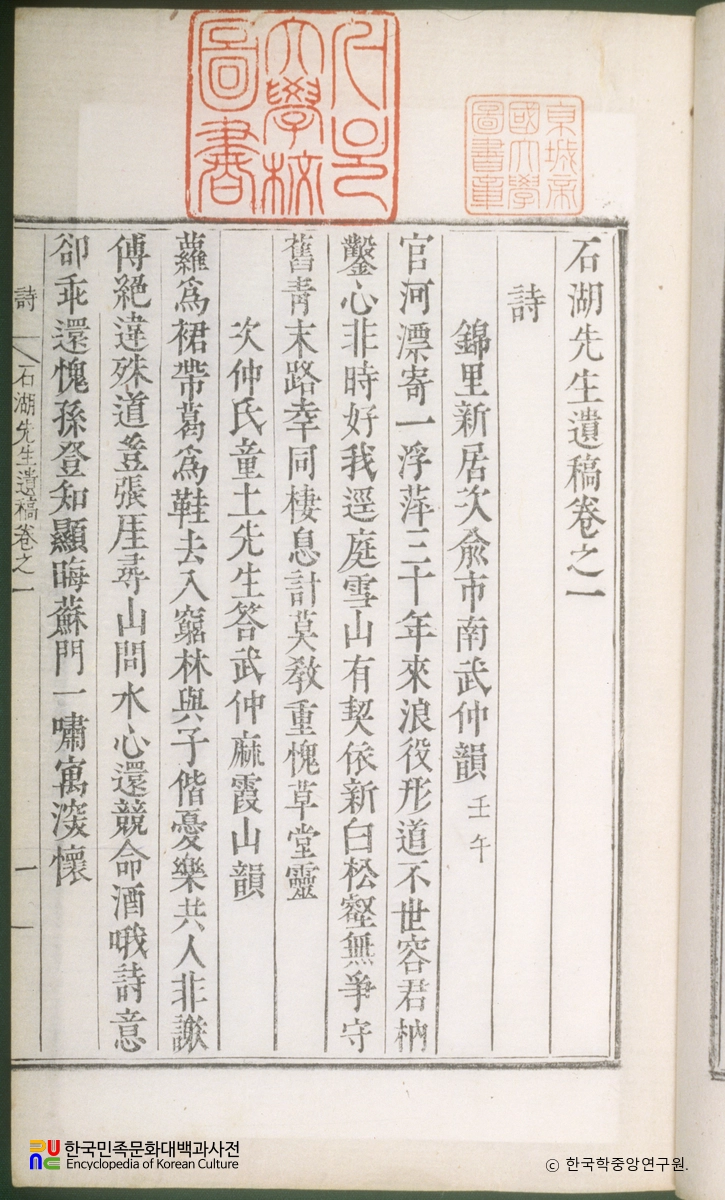 石湖先生遺稿卷之一
詩
錦里新居次兪市南武仲韻 壬午
官河漂寄一浮萍三十年來浪役形道不世容君枘
鑿心非時好我逕庭雪山有契依新白松壑無爭守
舊靑末路幸同棲息計莫敎重愧草堂靈
次仲氏童土先生答武仲麻霞山韻
蘿爲裙帶葛爲鞋去入窮林與子偕憂樂共人非謝
傅絶違殊道豈張厓尋山問水心還競命酒哦詩意
卻乖還愧孫登知顯晦蘇門一嘯寓深懷
詩
石湖先生遺稿卷之一
一
大學校
圖書
京城帝
國大學
圖書章
한국민족문화대백과사전
Encyclopedia of Korean Culture
ⓒ 한국학중앙연구원.